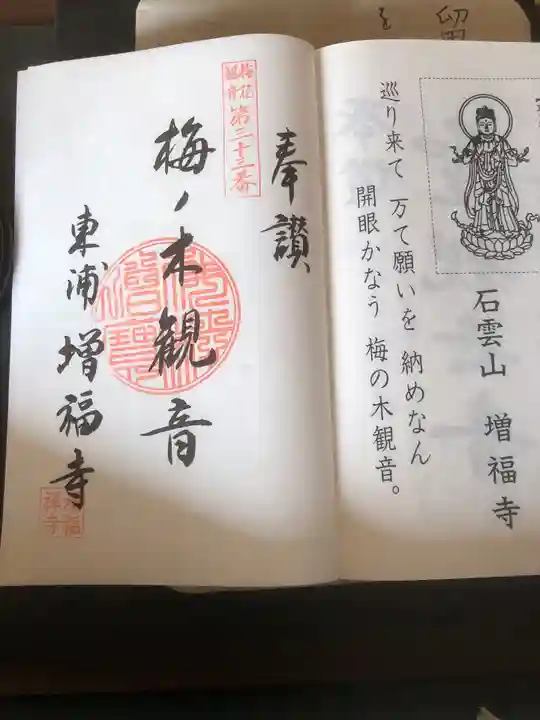 石雲山 増福寺
巡り来て 万て願いを 納めなん
開眼かなう 梅の木観音。
奉讃
第三十三番
梅ノ木観音
東浦増福寺